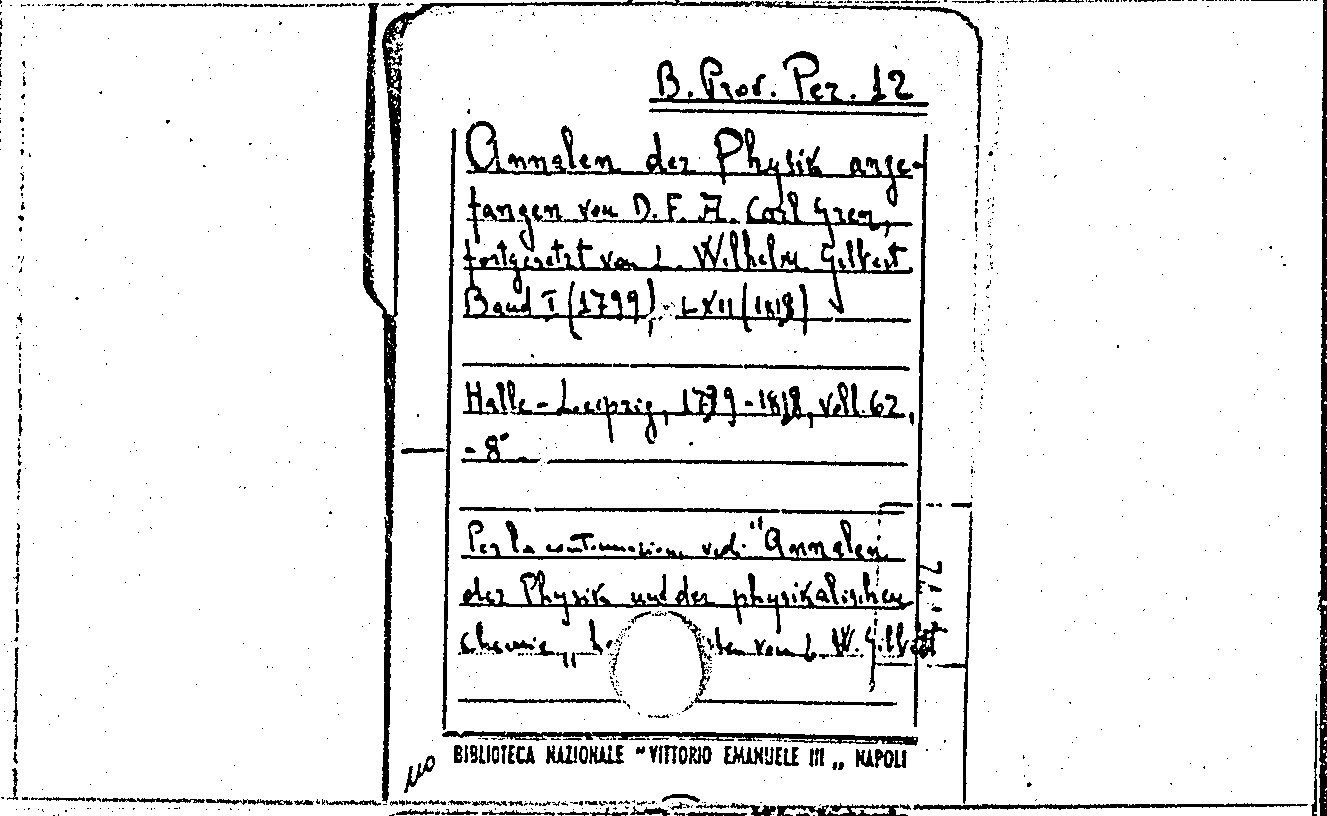 B. Prov. Per. 12
Annalen der Physik ange-
fangen von D. F. A. Carl Gren,
fortgesetzt von L. Wilhelm Gilbert
Band I (1799) - LXII (1818)
Halle - Leipzig, 1799-1818, voll. 62,
- 8°
Per la continuazione vedi "Annalen
der Physik und der physikalischen
chemie,, von L. W. Gilbert
BIBLIOTECA NAZIONALE "VITTORIO EMANUELE III„ NAPOLI